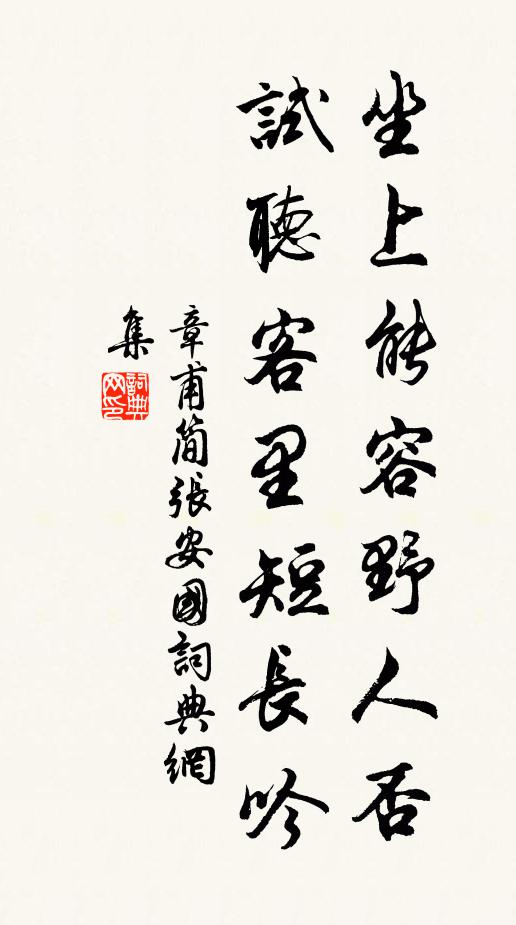 坐上能容野人否
試聽客里短長吟
章甫簡張安國詞典網
集
詞典
网印